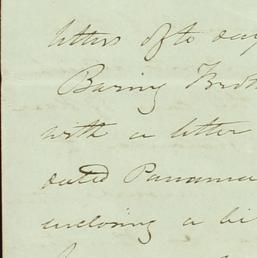 letters of to day
Baring Brot
with a letter
dated Panama
enclosing a bi